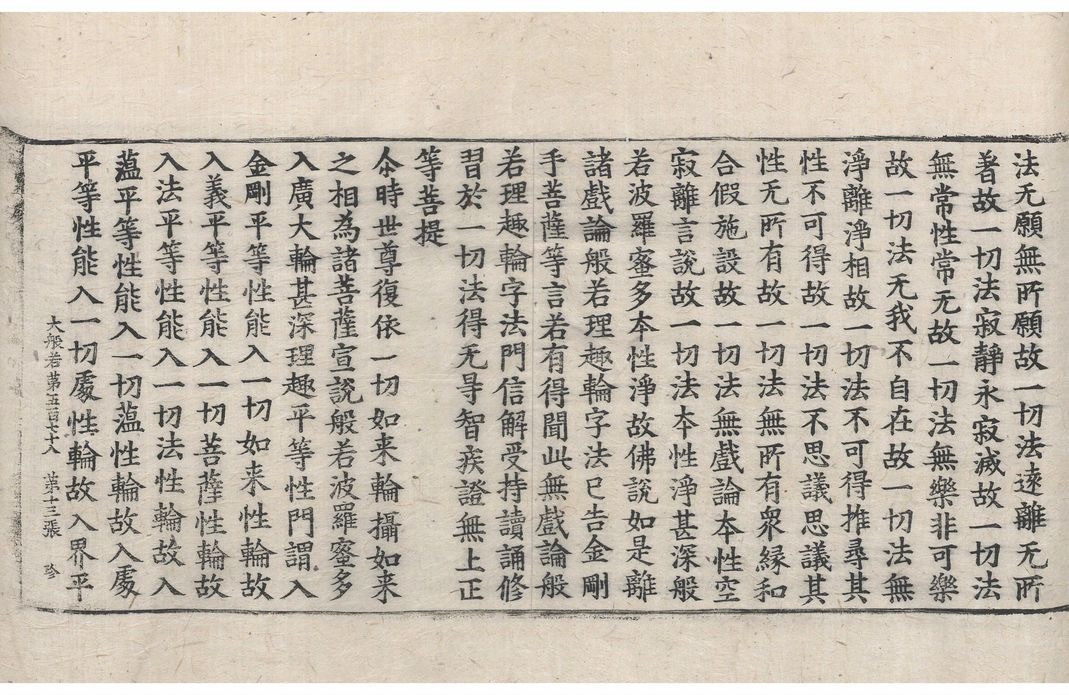 法无願無所願故一切法遠離无所
著故一切法寂靜永寂滅故一切法
無常性常无故一切法無樂非可樂
故一切法无我不自在故一切法無
淨離淨相故一切法不可得推尋其
性不可得故一切法不思議思議其
性无所有故一切法無所有衆緣和
合假施設故一切法無戱論本性空
寂離言說故一切法本性淨甚深般
若波羅蜜多本性淨故佛說如是離
諸戱論般若理趣輪字法已告金剛
手菩薩等言若有得聞此無戱論般
若理趣輪字法門信解受持讀誦修
習於一切法得无㝵智疾證無上正
等菩提
尒時世尊復依一切如来輪攝如来
之相為諸菩薩宣說般若波羅蜜多
入廣大輪甚深理趣平等性門謂入
金剛平等性能入一切如来性輪故
入義平等性能入一切菩薩性輪故
入法平等性能入一切法性輪故入
蘊平等性能入一切蘊性輪故入處
平等性能入一切處性輪故入界平
大般若第五百七十八 第十三張 珍